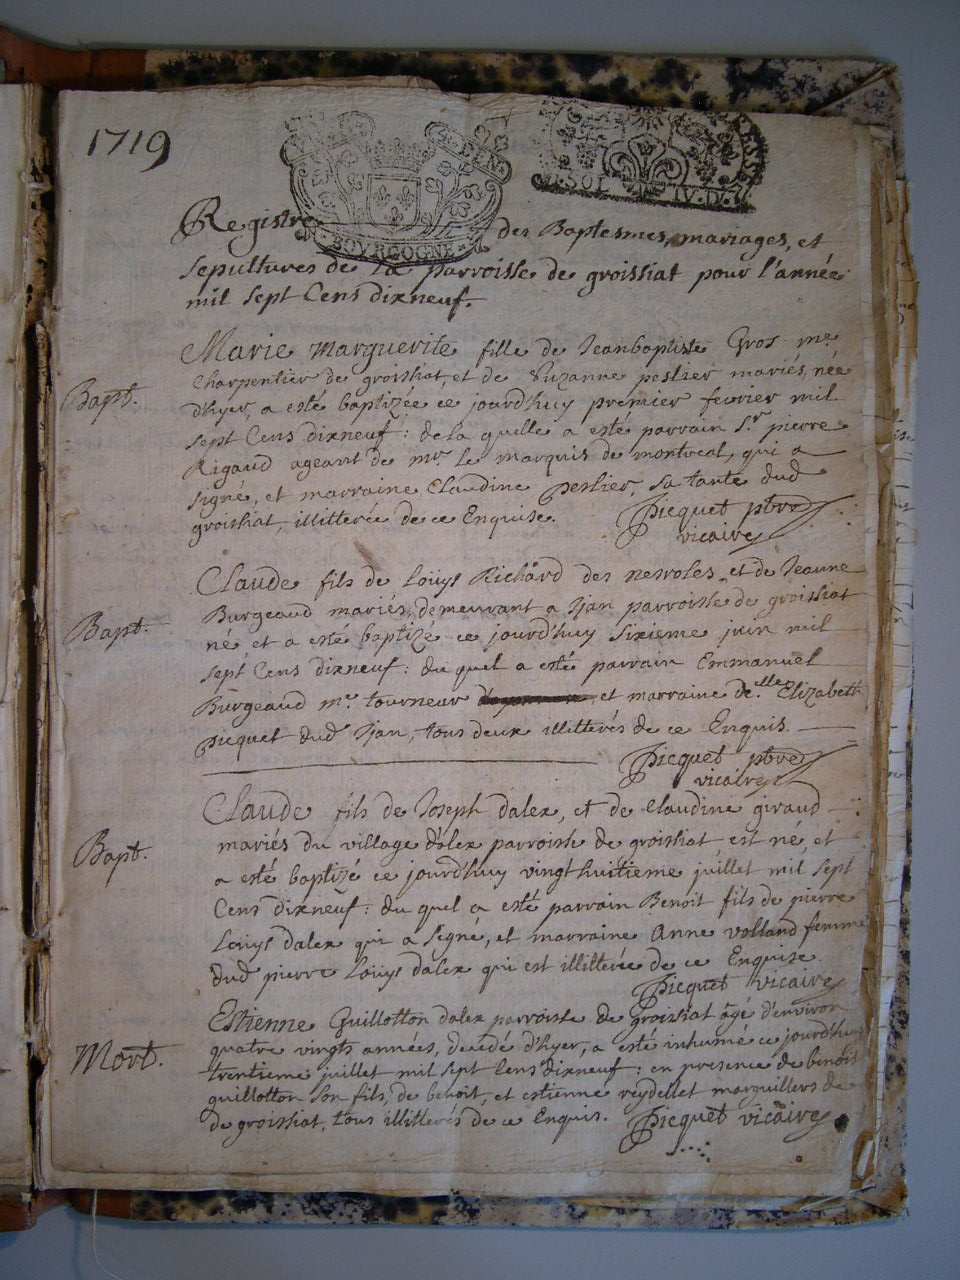 1719
BOVRGOGNE
SOL IV.D.
Registre des Baptesmes, mariages, et
sepultures de La parroisse de groissiat pour l'année
mil sept Cens dixneuf.
Bapt.
Marie marguerite fille de Jeanbaptiste Gros me
Charpentier de groissiat, et de Suzanne peslier mariés, née
d'hyer, a esté baptizée ce jourd'huy premier fevrier mil
sept Cens dixneuf: de la quelle a esté parrain Sr pierre
Rigaud ageant de mr. le marquis de montreal, qui a
signé, et marraine Claudine peslier, sa tante dud
groissiat, illitterée de ce Enquise. Picquet ptre
vicaire
Bapt.
Claude fils de Loüys Richard des nesroles, et de Jeanne
Burgeaud mariés, demeurant a Ijan parroisse de groissiat
né et a esté baptizé ce jourd'huy sixieme juin mil
sept Cens dixneuf: du quel a esté parrain Emmanuel
Burgeaud me. tourneur et marraine de.lle Elizabeth
Picquet dud Ijan, tous deux illitterés de ce Enquis.
Picquet ptre
vicaire
Bapt.
Claude fils de Joseph dalex, et de Claudine giraud
mariés du village d'alex parroisse de groissiat est né, et
a esté baptizé ce jourd'huy vingt huitieme juillet mil sept
Cens dixneuf: du quel a esté parrain Benoit fils de pierre
Loüys dalex qui a signé, et marraine Anne volland femme
dud pierre Loüys dalex qui est illitterée de ce Enquise
Picquet vicaire
Mort.
Estienne Guillotton dalex parroisse de groissiat âgé d'environ
quatre vingts années, decedé d'hyer, a esté inhumé ce jourd'huy
trentieme juillet mil sept Cens dixneuf: en presence de benoit
guillotton son fils, de benoit, et estienne reydellet marguilliers de
de groissiat, tous illitterés de ce Enquis. Picquet vicaire